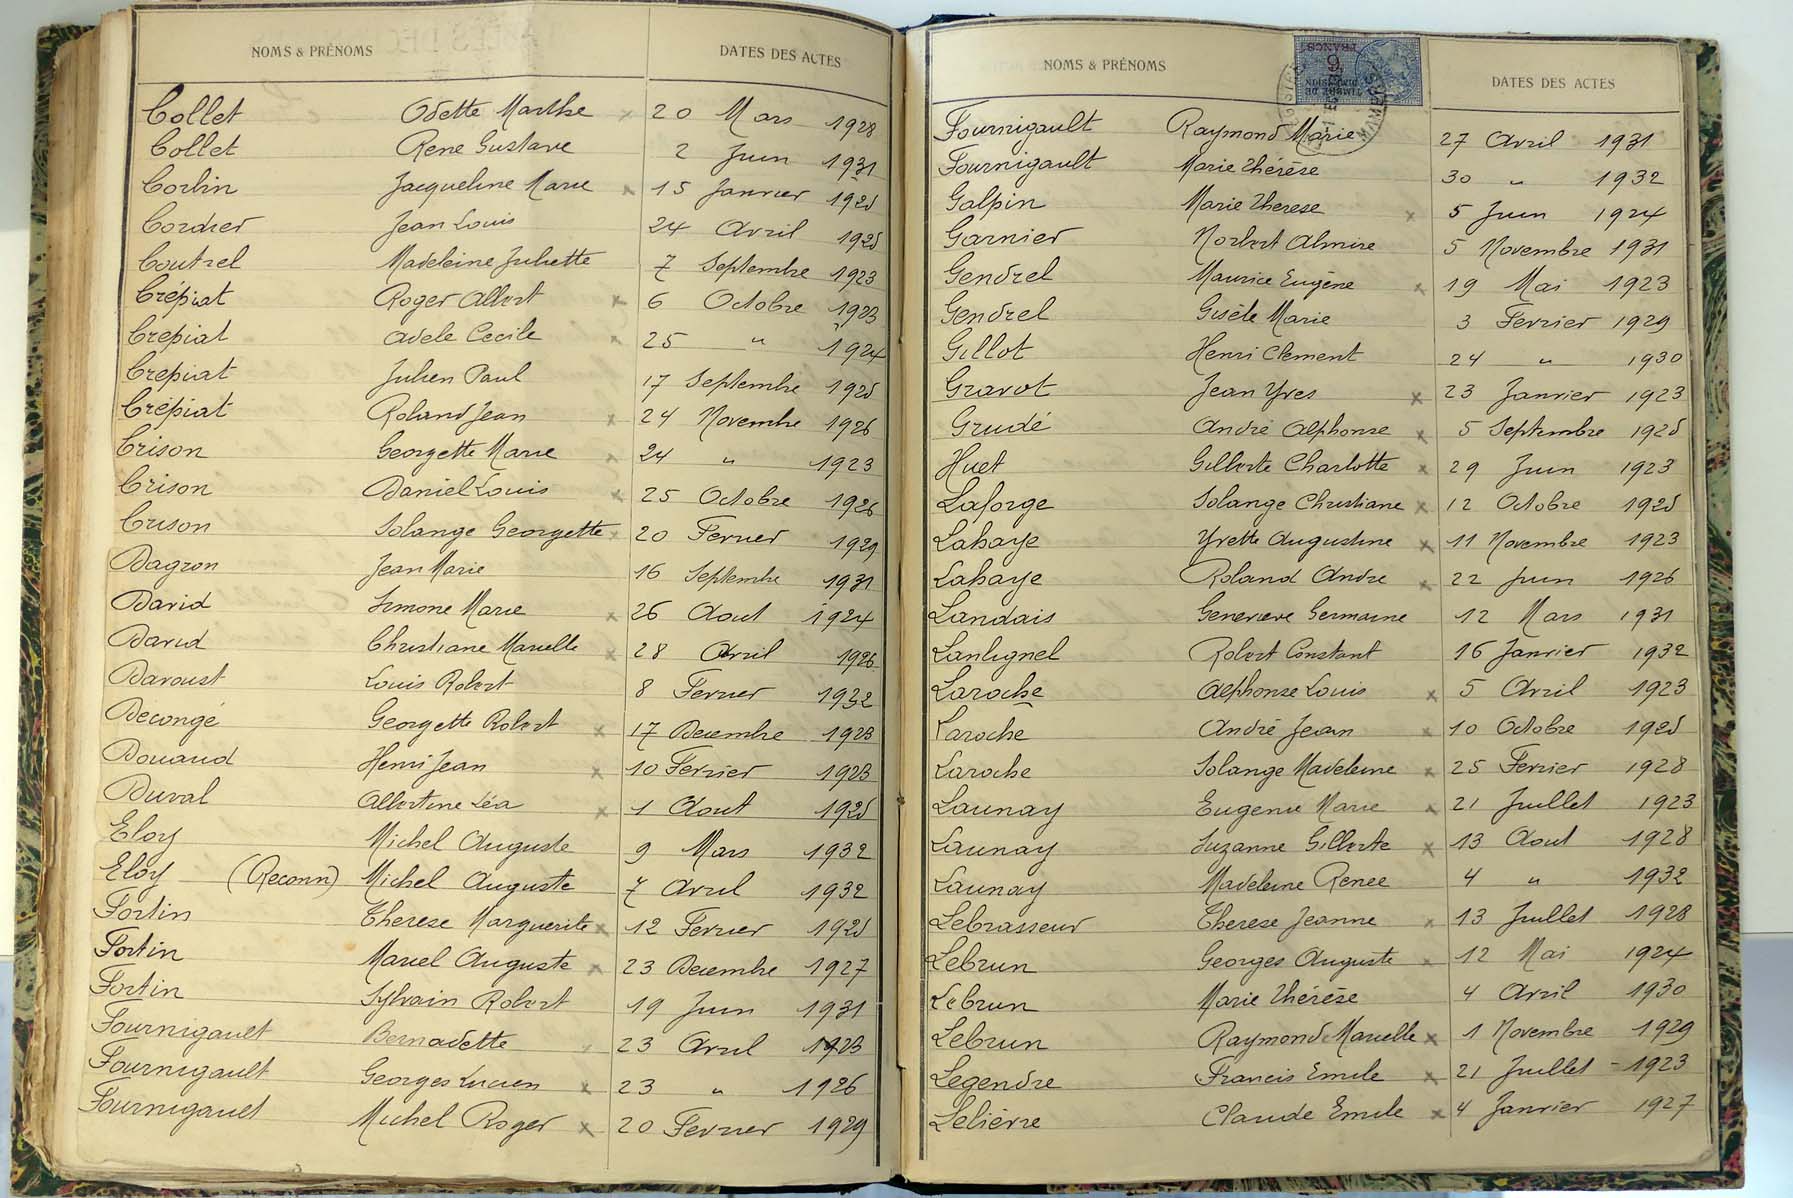 NOMS & PRÉNOMS DATES DES ACTES
Collet Odette Marthe x 20 Mars 1928
Collet Rene Gustave 2 Juin 1931
Corbin Jacqueline Marie x 15 Janvier 1925
Cordier Jean Louis 24 Avril 1925
Coutrel Madeleine Juliette 7 Septembre 1923
Crépiat Roger Albert x 6 Octobre 1923
Crepiat Adele Cecile x 25 " 1924
Crepiat Julien Paul 17 Septembre 1925
Crépiat Roland Jean x 24 Novembre 1926
Crison Georgette Marie x 24 " 1923
Crison Daniel Louis x 25 Octobre 1926
Crison Solange Georgette x 20 Fevrier 1929
Dagron Jean Marie 16 Septembre 1931
David Simone Marie x 26 Aout 1924
David Christiane Marcelle x 28 Avril 1926
Davoust Louis Robert 8 Fevrier 1932
Decongé Georgette Robert x 17 Decembre 1923
Douaud Henri Jean x 10 Fevrier 1923
Duval Albertine Léa x 1 Aout 1925
Eloy Michel Auguste 9 Mars 1932
Eloy (Reconn) Michel Auguste 7 Avril 1932
Fortin Therese Marguerite x 12 Fevrier 1925
Fortin Marcel Auguste x 23 Decembre 1927
Fortin Sylvain Robert 19 Juin 1931
Fournigault Bernadette x 23 Avril 1923
Fournigault Georges Lucien x 23 " 1926
Fournigault Michel Roger x 20 Fevrier 1929
NOMS & PRÉNOMS DATES DES ACTES
TIMBRE DE
DIMENSION
6
FRANCS
MAMERS
Fournigault Raymond Marie 27 Avril 1931
Fournigault Marie Thérèse 30 " 1932
Galpin Marie Therese x 5 Juin 1924
Garnier Norbert Almire 5 Novembre 1931
Gendrel Maurice Eugène x 19 Mai 1923
Gendrel Gisèle Marie 3 Fevrier 1929
Gillot Henri Clement 24 " 1930
Gravot Jean Yves x 23 Janvier 1923
Grudé André Alphonse x 5 Septembre 1925
Huet Gilberte Charlotte x 29 Juin 1923
Laforge Solange Christiane x 12 Octobre 1925
Lahaye Yvette Augustine x 11 Novembre 1923
Lahaye Roland Andre x 22 Juin 1926
Landais Genevieve Germaine 12 Mars 1931
Lanlignel Robert Constant 16 Janvier 1932
Laroche Alphonse Louis x 5 Avril 1923
Laroche André Jean x 10 Octobre 1925
Laroche Solange Madeleine x 25 Fevrier 1928
Launay Eugenie Marie x 21 Juillet 1923
Launay Suzanne Gilberte x 13 Aout 1928
Launay Madeleine Renee 4 " 1932
Lebrasseur Therese Jeanne x 13 Juillet 1928
Lebrun Georges Auguste x 12 Mai 1924
Lebrun Marie Thérèse 4 Avril 1930
Lebrun Raymonde Marcelle x 1 Novembre 1929
Legendre Francis Emile x 21 Juillet - 1923
Lelièvre Claude Emile x 4 Janvier 1927